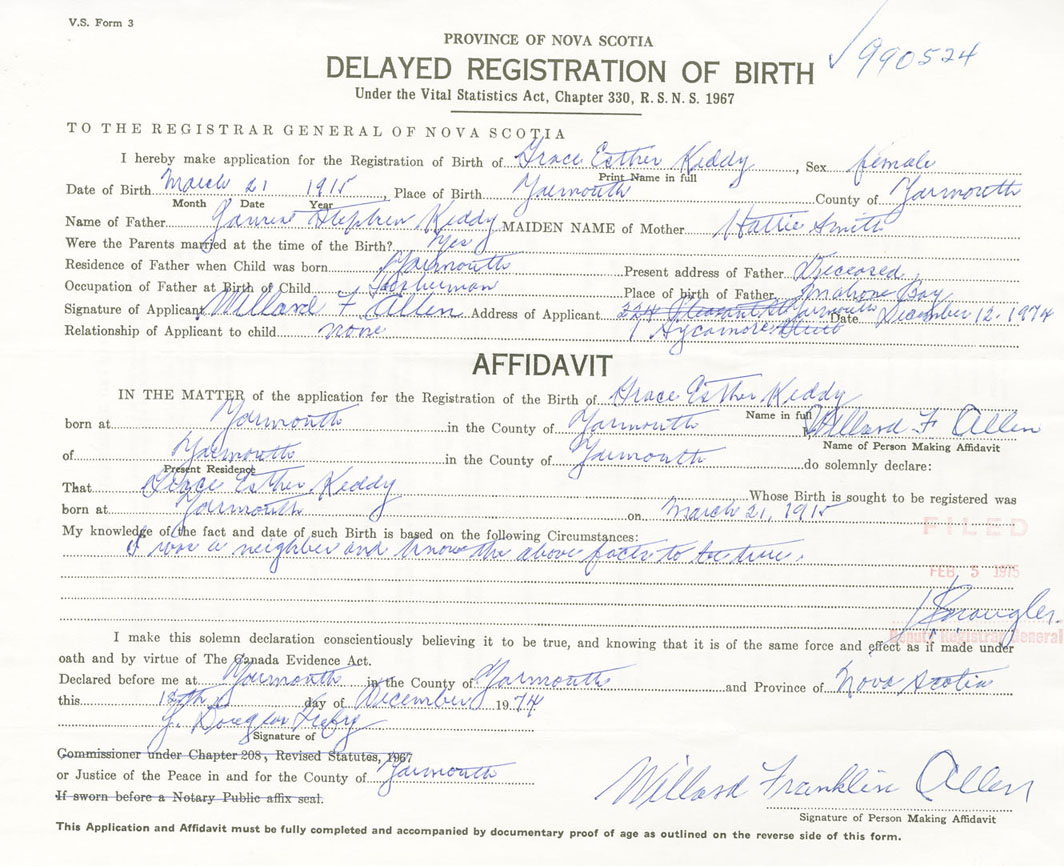 V.S. Form 3
PROVINCE OF NOVA SCOTIA
DELAYED REGISTRATION OF BIRTH
✓990524
Under the Vital Statistics Act, Chapter 330, R.S.N.S. 1967
TO THE REGISTRAR GENERAL OF NOVA SCOTIA
I hereby make application for the Registration of Birth of Grace Esther Keddy, Sex female
Print Name in full
Date of Birth March 21 1915, Place of Birth Yarmouth County of Yarmouth
Month Date Year
Name of Father Stephen Keddy MAIDEN NAME of Mother Hattie Smith
Were the Parents married at the time of the Birth? Yes
Residence of Father when Child was born Yarmouth Present address of Father Deceased
Occupation of Father at Birth of Child Fisherman Place of birth of Father Mahone Bay
Signature of Applicant Willard F Allen Address of Applicant Pleasant St Yarmouth Date December 12, 1974
Relationship of Applicant to child none Sycamore Street
AFFIDAVIT
IN THE MATTER of the application for the Registration of the Birth of Grace Esther Keddy
Name in full
born at Yarmouth in the County of Yarmouth Willard F Allen
Name of Person Making Affidavit
of Yarmouth in the County of Yarmouth do solemnly declare:
Present Residence
That Grace Esther Keddy Whose Birth is sought to be registered was
born at Yarmouth on March 21, 1915
My knowledge of the fact and date of such Birth is based on the following Circumstances:
I was a neighber and know the above facts to be true.
FILED
FEB. 5 1975
Deputy Registrar General
I make this solemn declaration conscientiously believing it to be true, and knowing that it is of the same force and effect as if made under
oath and by virtue of The Canada Evidence Act.
Declared before me at Yarmouth in the County of Yarmouth and Province of Nova Scotia
this 12th day of December 1974
Signature of
Commissioner under Chapter 208, Revised Statutes, 1967
or Justice of the Peace in and for the County of Yarmouth
If sworn before a Notary Public affix seal.
Willard Franklin Allen
Signature of Person Making Affidavit
This Application and Affidavit must be fully completed and accompanied by documentary proof of age as outlined on the reverse side of this form.